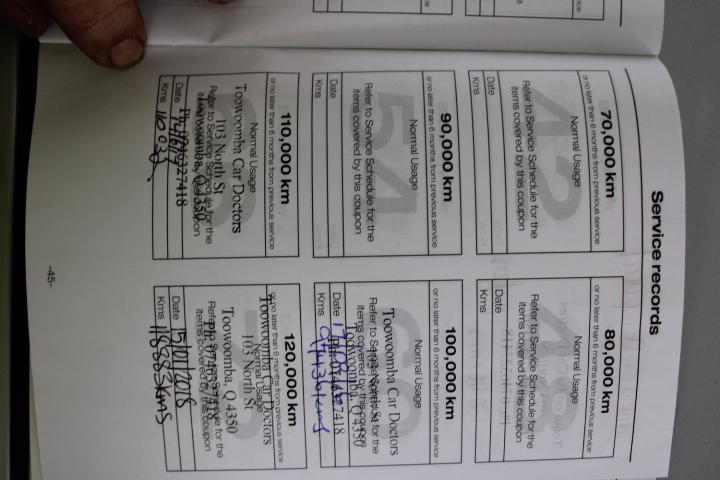 Service records
70,000 km
or no later than 6 months from previous service
Normal Usage
Refer to Service Schedule for the
items covered by this coupon
Date
Kms
80,000 km
or no later than 6 months from previous service
Normal Usage
Refer to Service Schedule for the
items covered by this coupon
Date
Kms
90,000 km
or no later than 6 months from previous service
Normal Usage
Refer to Service Schedule for the
items covered by this coupon
Date
Kms
100,000 km
or no later than 6 months from previous service
Normal Usage
Toowoomba Car Doctors
Refer to Service Schedule for the
items covered by this coupon
Toowoomba, Q 4350
Date
Kms
110,000 km
or no later than 6 months from previous service
Normal Usage
Toowoomba Car Doctors
103 North St
Refer to Service Schedule for the
Toowoomba, Q 4350
items covered by this coupon
Date Ph: 0746327418
Kms
120,000 km
or no later than 6 months from previous service
Toowoomba Car Doctors
Normal Usage
103 North St
Toowoomba, Q 4350
Refer to Service Schedule for the
Ph: 0746327418
items covered by this coupon
Date 15/01/2018
Kms 118883kms
-45-